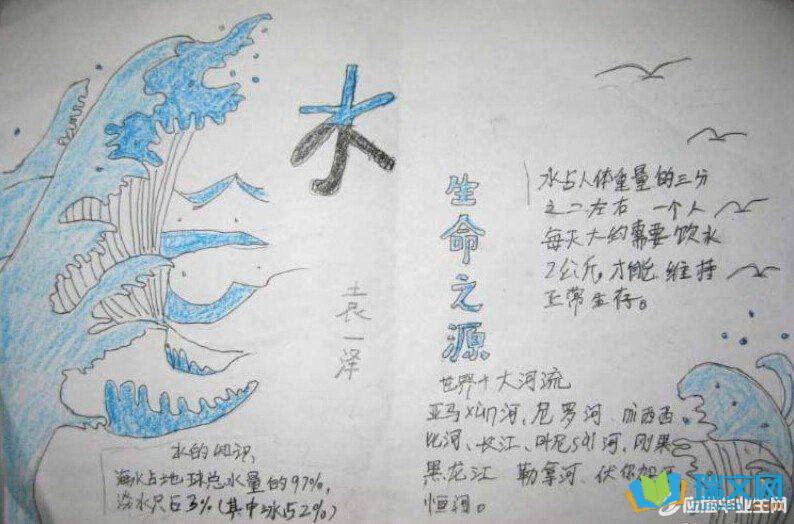 水
生命之源
袁一泽
水占人体重量的三分
之二左右 一个人
每天大约需要饮水
2公斤,才能维持
正常生存。
世界十大河流
亚马xun河、尼罗河、
比河、长江、叶尼sai河、刚果
黑龙江 勒拿河、伏尔加河
恒河。
水的知识
海水占地球总水量的97%,
淡水只占3%(其中冰占2%)
瑞文网
应届毕业生网